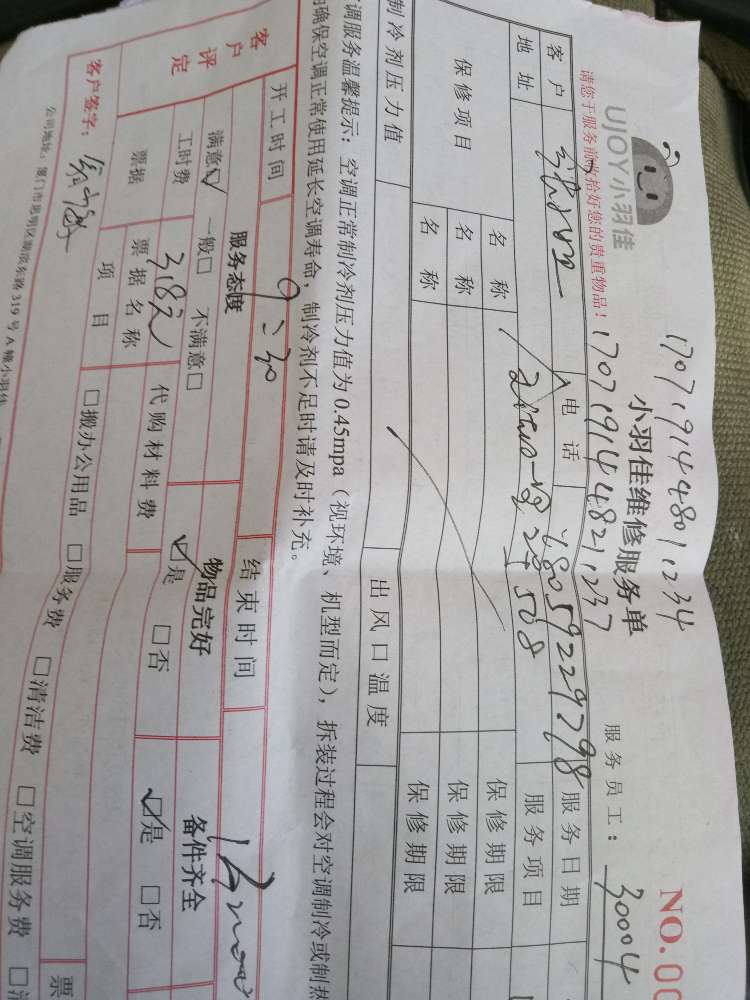 UJOY小羽佳
请您于服务前收拾好您的贵重物品!
17071914480 1234
17071914482 1237
小羽佳维修服务单
NO.00
服务员工: 30004
客户
电话 18059229798
服务日期
地址
28 508
服务项目
保修项目
名称
保修期限
名称
保修期限
名称
保修期限
制冷剂压力值
出风口温度
调服务温馨提示: 空调正常制冷剂压力值为0.45mpa (视环境、机型而定), 拆装过程会对空调制冷或制热
确保空调正常使用延长空调寿命, 制冷剂不足时请及时补充。
开工时间 9:30
结束时间
客户评定
服务态度
物品完好
备件齐全
满意☑ 一般□ 不满意□
☑是 □否
☑是 □否
工时费 318元
代购材料费
票据
票据名称
项目
□搬办公用品 □服务费 □清洁费 □空调服务费
票
客户签字:
公司地址: 厦门市思明区湖滨东路319号A幢小羽佳